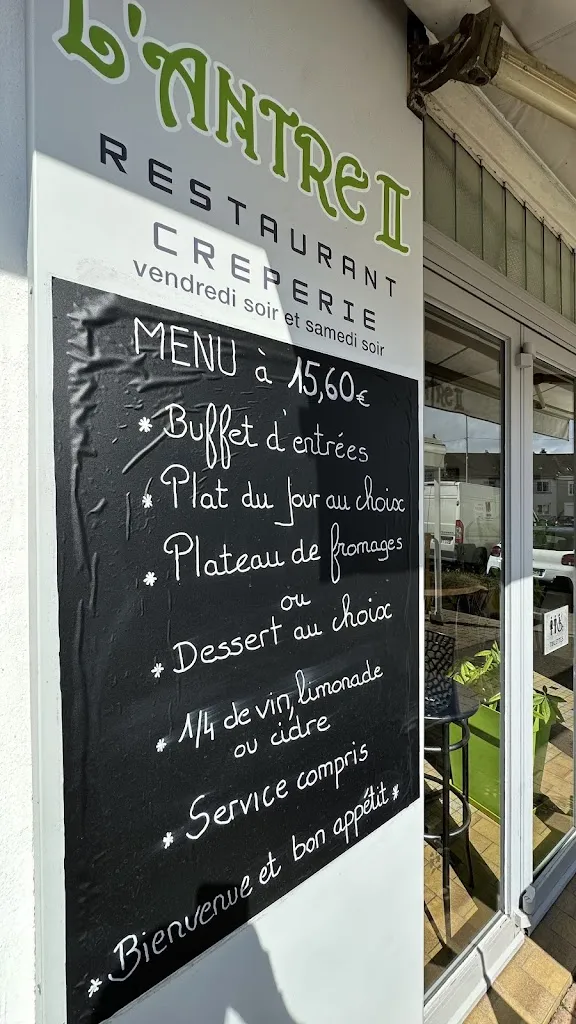 L'ANTRE II
RESTAURANT
CREPERIE
vendredi soir et samedi soir
MENU à 15,60€
* Buffet d'entrées
* Plat du jour au choix
* Plateau de fromages
ou
* Dessert au choix
* 1/4 de vin, limonade
ou cidre
* Service compris
* Bienvenue et bon appétit *